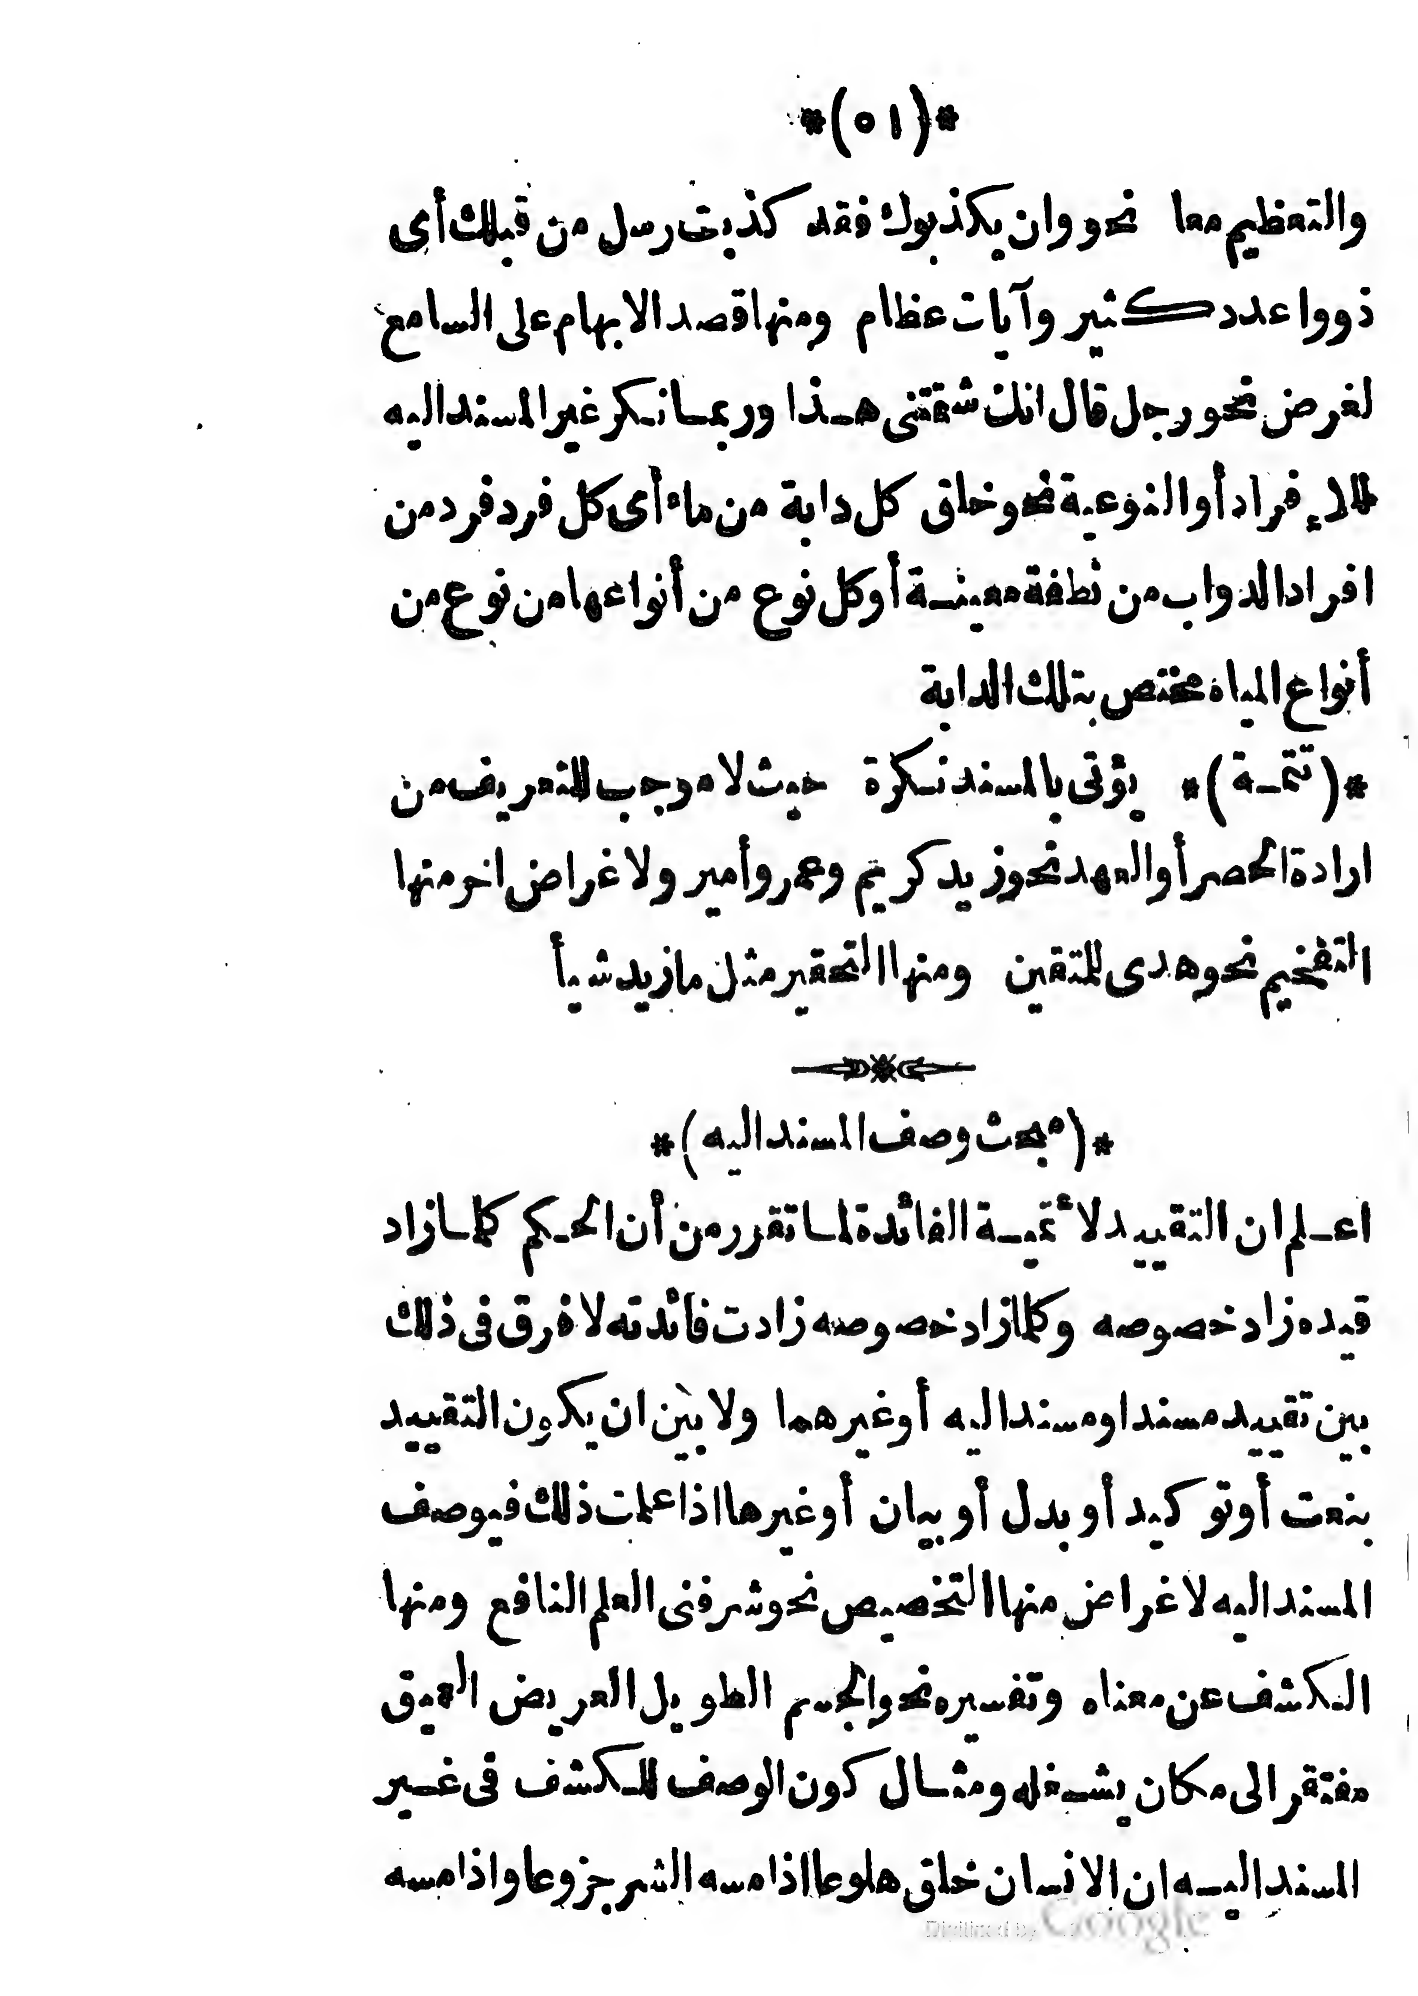 *(٥١)*
والتعظيم معا نحو وان يكذبوك فقد كذبت رسل من قبلك أى
ذووا عدد كثير وآيات عظام ومنها قصد الابهام على السامع
لغرض نحو رجل قال انك شتتنى هذا وربما نكر غير المسند اليه
للافراد أو النوعية نحو خلق كل دابة من ماء أى كل فرد فرد من
افراد الدواب من نطفة معينة أو كل نوع من أنواعها من نوع من
أنواع المياه مختص بتلك الدابة
*(تتمة)* يؤتى بالمسند نكرة حيث لا موجب للتعريف من
ارادة الحصر أو العهد نحو زيد كريم وعمرو أمير ولا غراض اخر منها
التفخيم نحو هدى للمتقين ومنها التحقير مثل مازيد شيأ
*(مبحث وصف المسند اليه)*
اعلم ان التقييد لا تمية الفائدة لما تقرر من أن الحكم كلما زاد
قيده زاد خصوصه وكلما زاد خصوصه زادت فائدته لا فرق فى ذلك
بين تقييد مسندا ومسندا اليه أو غيرهما ولا بين ان يكون التقييد
بنعت أو توكيد أو بدل أو بيان أو غيرها اذا علمت ذلك فيوصف
المسند اليه لا غراض منها التخصيص نحو شرفنى العلم النافع ومنها
الكشف عن معناه وتفسيره نحو الجسم الطويل العريض العميق
مفتقر الى مكان يشغله ومثال كون الوصف للكشف فى غير
المسند اليه ان الانسان خلق هلوعا اذا مسه الشر جزوعا واذا مسه
Digitized by Google